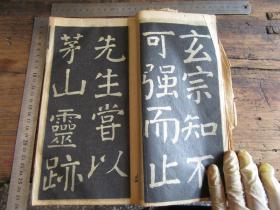 玄宗知不
可强而止
先生嘗以
茅山靈跡